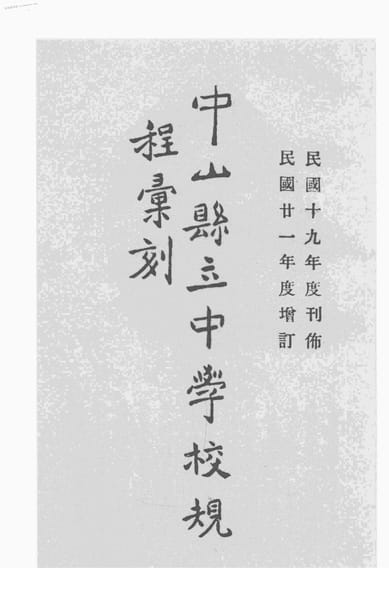 民國十九年度刊佈
民國廿一年度增訂
中山縣立中學校規
程彙刻